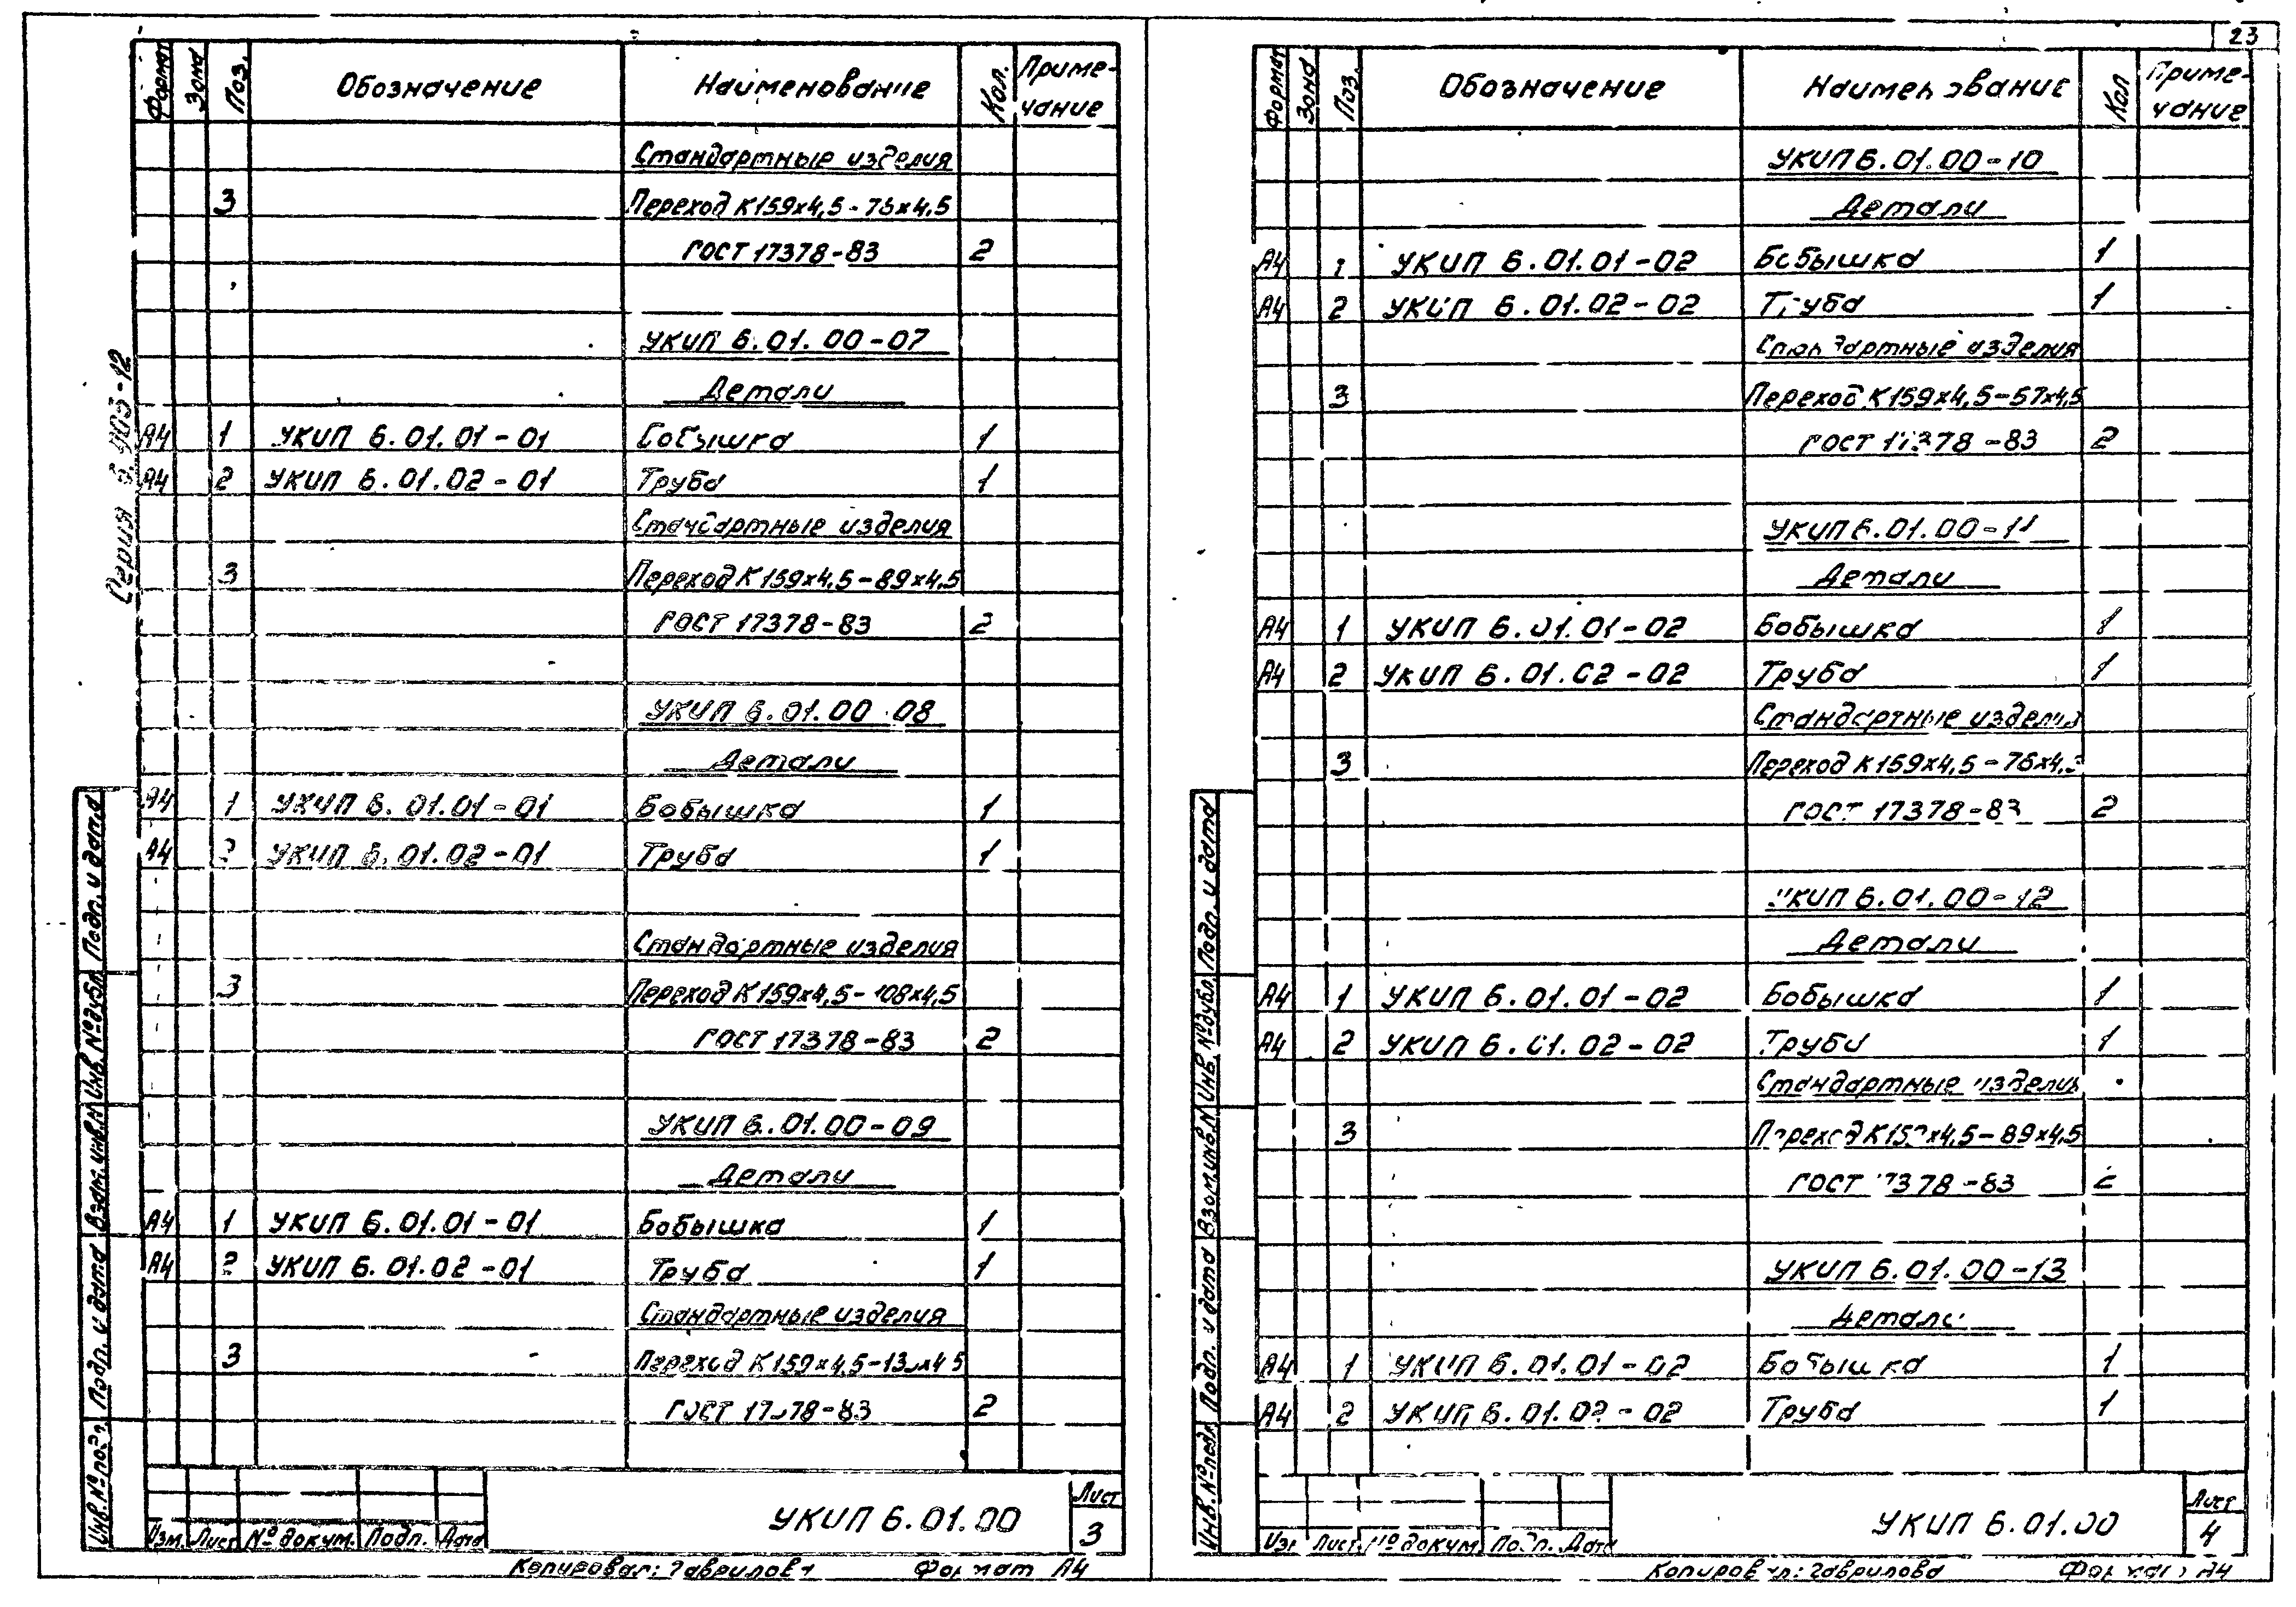 23
Формат Зона Поз. Обозначение Наименование Кол. Приме-
чание
Стандартные изделия
3 Переход К159х4,5-76х4,5
ГОСТ 17378-83 2
УКИП 6.01.00-07
Детали
А4 1 УКИП 6.01.01-01 Бобышка 1
А4 2 УКИП 6.01.02-01 Труба 1
Стандартные изделия
3 Переход К159х4,5-89х4,5
ГОСТ 17378-83 2
УКИП 6.01.00-08
Детали
А4 1 УКИП 6.01.01-01 Бобышка 1
А4 2 УКИП 6.01.02-01 Труба 1
Стандартные изделия
3 Переход К159х4,5-108х4,5
ГОСТ 17378-83 2
УКИП 6.01.00-09
Детали
А4 1 УКИП 6.01.01-01 Бобышка 1
А4 2 УКИП 6.01.02-01 Труба 1
Стандартные изделия
3 Переход
ГОСТ 17378-83 2
Серия
Инв.№подл. Подп. и дата Взам.инв.№ Инв.№дубл. Подп. и дата
УКИП 6.01.00
Лист
3
Изм. Лист №докум. Подп. Дата
Копировал: Гаврилова Формат А4
Формат Зона Поз. Обозначение Наименование Кол Приме-
чание
УКИП 6.01.00-10
Детали
А4 1 УКИП 6.01.01-02 Бобышка 1
А4 2 УКИП 6.01.02-02 Труба 1
Стандартные изделия
3 Переход К159х4,5-57х4,5
ГОСТ 17378-83 2
УКИП 6.01.00-11
Детали
А4 1 УКИП 6.01.01-02 Бобышка 1
А4 2 УКИП 6.01.02-02 Труба 1
Стандартные изделия
3 Переход К159х4,5-76х4,5
ГОСТ 17378-83 2
УКИП 6.01.00-12
Детали
А4 1 УКИП 6.01.01-02 Бобышка 1
А4 2 УКИП 6.01.02-02 Труба 1
Стандартные изделия
3 Переход К159х4,5-89х4,5
ГОСТ 17378-83 2
УКИП 6.01.00-13
Детали
А4 1 УКИП 6.01.01-02 Бобышка 1
А4 2 УКИП 6.01.02-02 Труба 1
Инв.№подл. Подп. и дата Взам.инв.№ Инв.№дубл. Подп. и дата
УКИП 6.01.00
Лист
4
Изм Лист №докум. Подп. Дата
Копировал: Гаврилова Формат А4